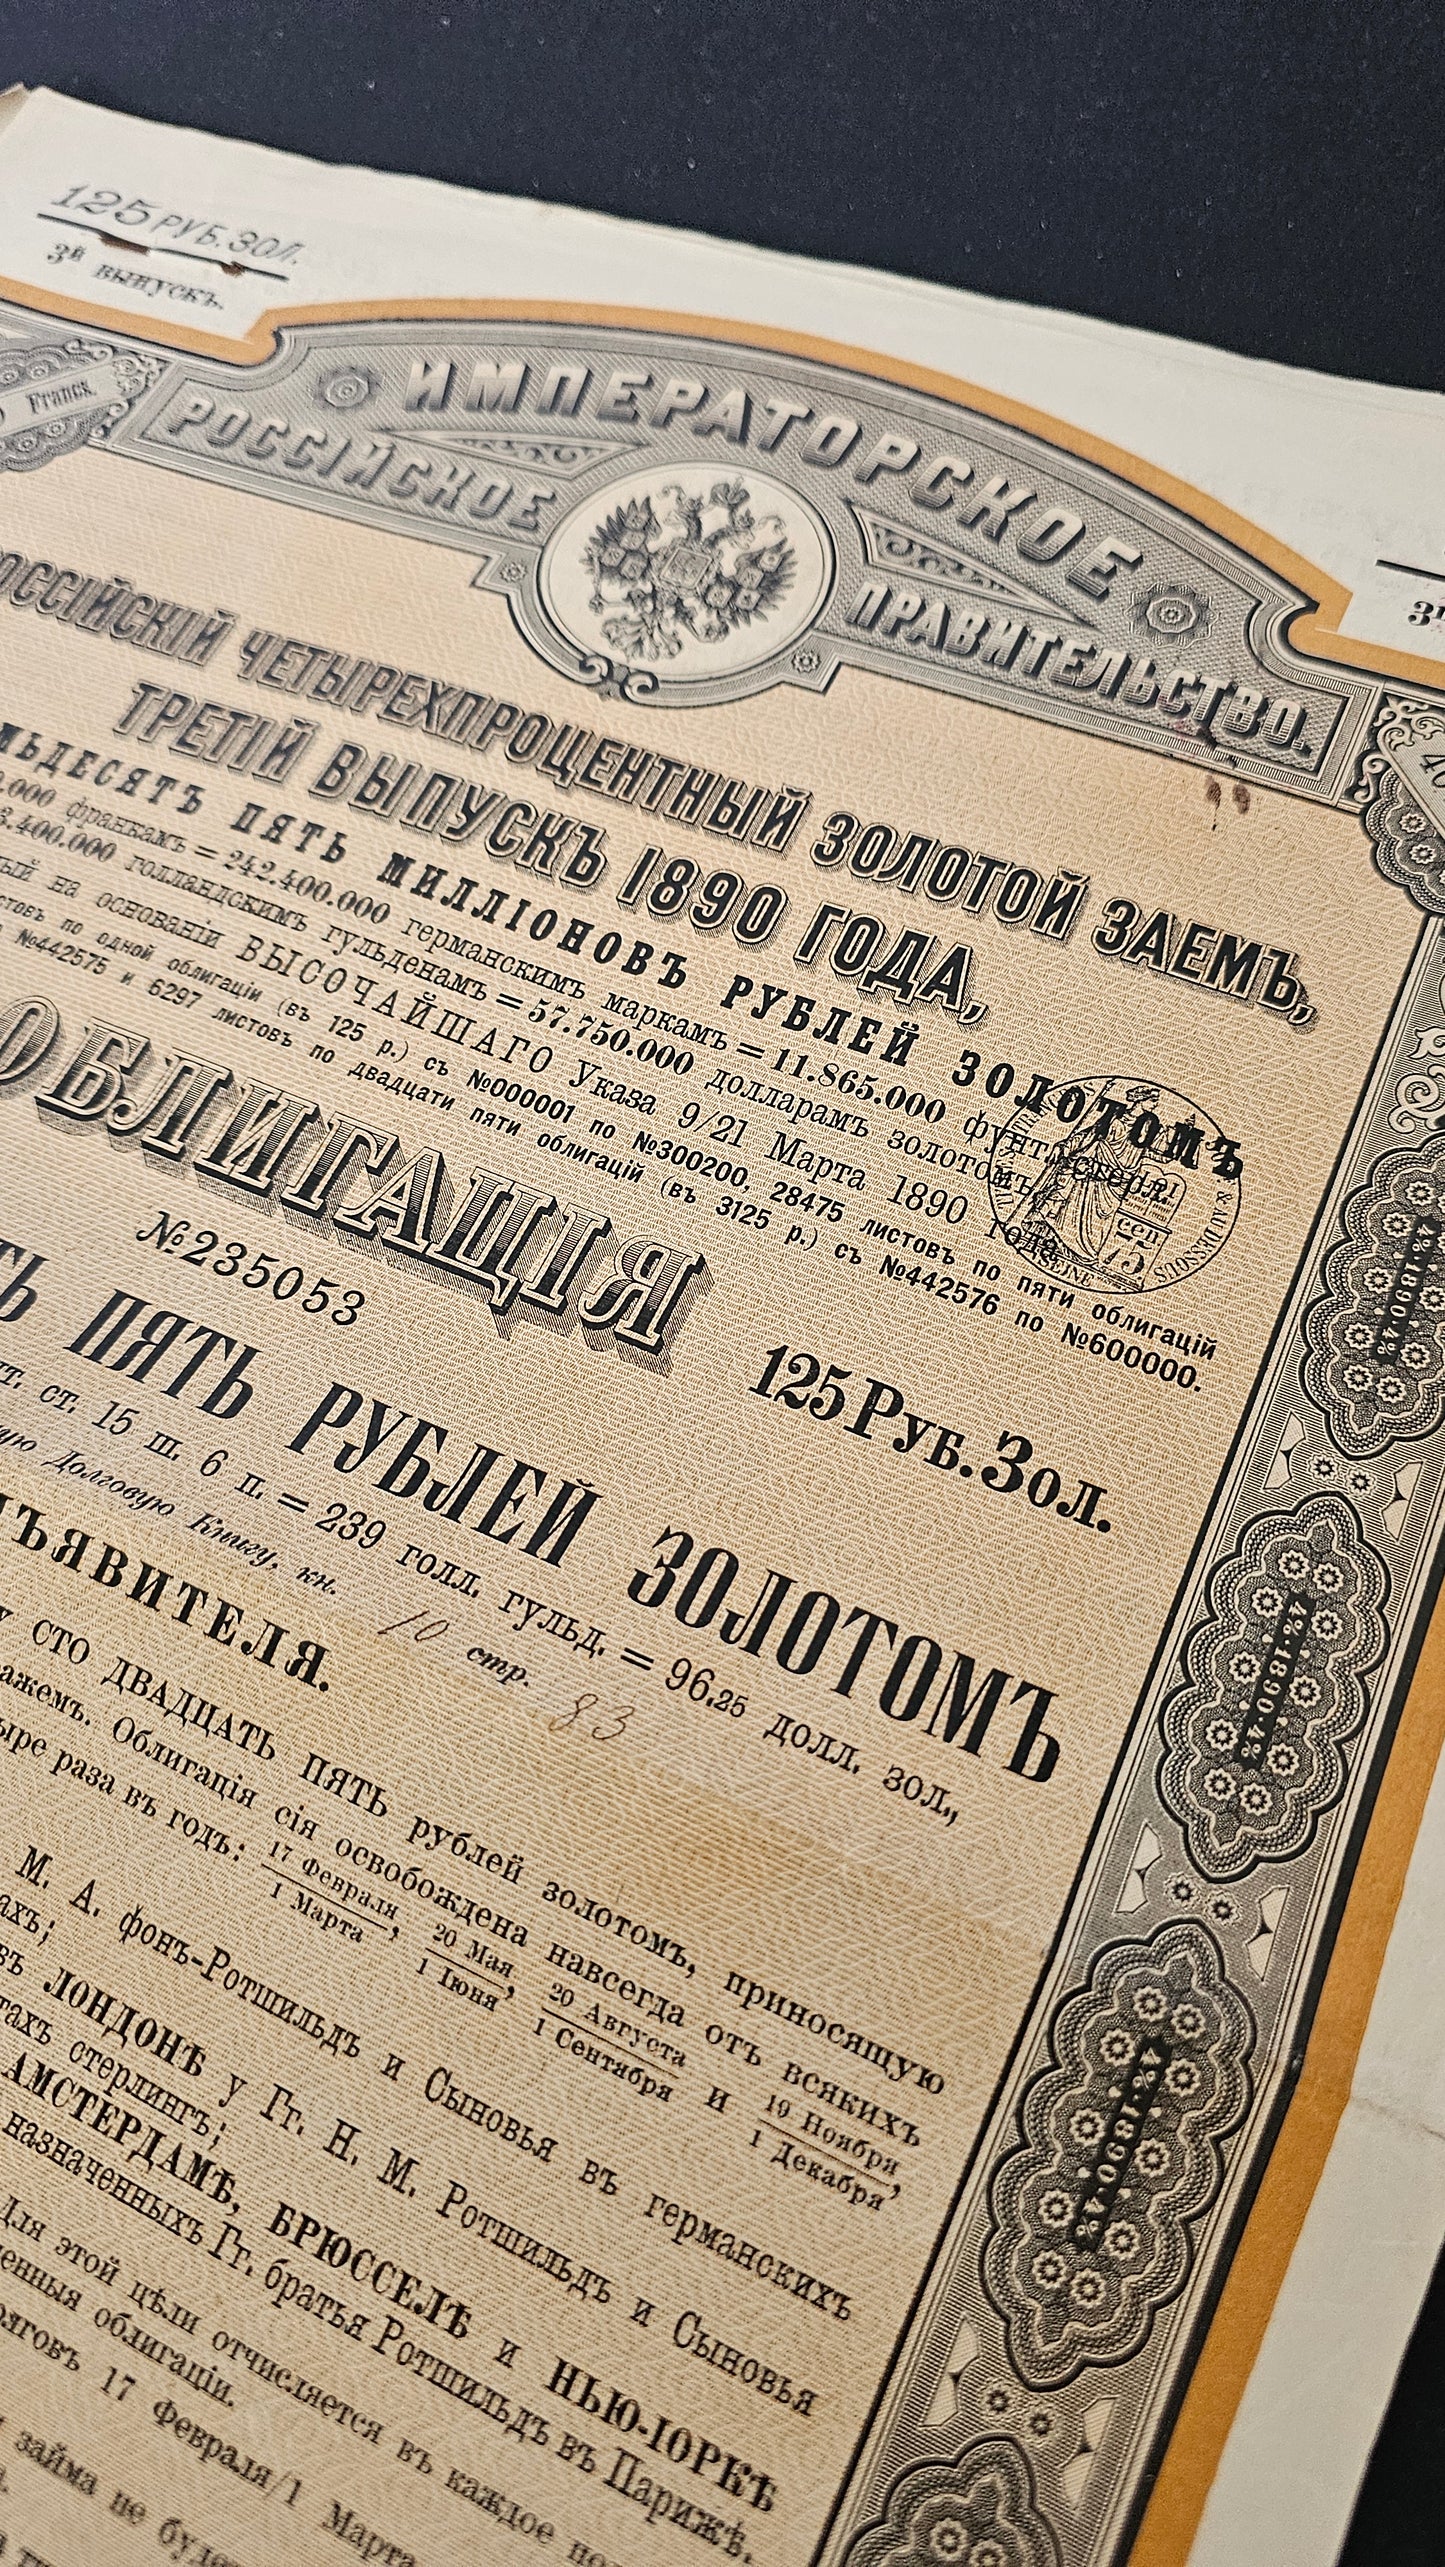 125 РУБ. ЗОЛ.
3й выпускъ.
Francs.
ИМПЕРАТОРСКОЕ
РОССІЙСКОЕ ПРАВИТЕЛЬСТВО.
РОССІЙСКІЙ ЧЕТЫРЕХПРОЦЕНТНЫЙ ЗОЛОТОЙ ЗАЕМЪ,
ТРЕТІЙ ВЫПУСКЪ 1890 ГОДА,
ПЯТЬ МИЛЛІОНОВЪ РУБЛЕЙ ЗОЛОТОМЪ
.000 франкамъ = 242.400.000 германскимъ маркамъ = 11.865.000 фунт. стерл.
3.400.000 голландскимъ гульденамъ = 57.750.000 долларамъ золотомъ,
на основаніи ВЫСОЧАЙШАГО Указа 9/21 Марта 1890 года
по одной облигаціи (въ 125 р.) съ №000001 по №300200, 28475 листовъ по пяти облигацій
№442575 и 6297 листовъ по двадцати пяти облигацій (въ 3125 р.) съ №442576 по №600000.
& AU DESSOUS
SEINE
75 cen
ОБЛИГАЦІЯ
№235053
125 Руб. Зол.
ПЯТЬ РУБЛЕЙ ЗОЛОТОМЪ
ст. 15 ш. 6 п. = 239 голл. гульд. = 96.25 долл. зол.,
Долговую Книгу, кн. 10 стр. 83
СТО ДВАДЦАТЬ ПЯТЬ рублей золотомъ, приносящую
Облигація сія освобождена навсегда отъ всякихъ
раза въ годъ: 17 Февраля/1 Марта, 20 Мая/1 Іюня, 20 Августа/1 Сентября и 19 Ноября/1 Декабря,
М. А. фонъ-Ротшильдъ и Сыновья въ германскихъ
въ ЛОНДОНѢ у Гг. Н. М. Ротшильдъ и Сыновья
стерлингъ;
АМСТЕРДАМѢ, БРЮССЕЛѢ и НЬЮ-ІОРКѢ
назначенныхъ Гг. братья Ротшильдъ въ Парижѣ.
Для этой цѣли отчисляется въ каждое
облигаціи.
17 Февраля/1 Марта
займа не
4%·1890·4%
4%·1890·4%
4%·1890·4%